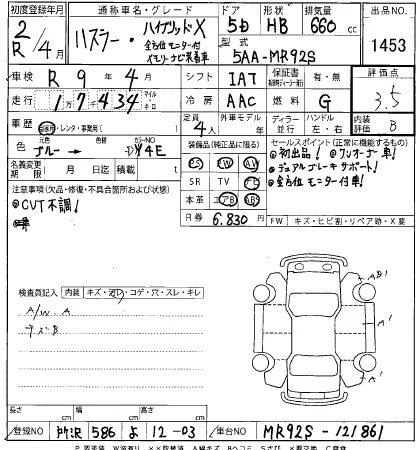 初度登録年月 通称車名・グレード ドア 形状 排気量 出品NO.
2 R/4月 ハスラー・ハイブリッドX 5D HB 660 cc 1453
全方位モニター付
メモリーナビ装着車
型式 5AA-MR92S
車検 R 9年 4月 シフト IAT 保証書 有・無 評価点
走行 17434 マイル キロ 冷房 AAC 燃料 G 3.5
車歴 自家用・レンタ・事業用( ) 定員 4人 外車モデル 年 ディーラー 並行 ハンドル 左・右 内装評価 B
色 元色 ブルー → 色替 カラーNO DY4E
装備品(純正品に限る) セールスポイント(正常に機能するもの)
PS AW PW
SR TV ナビ
本革 エアB ABS
R券 6,830円
①初出品! ②ワンオーナー車!
③デュアルブレーキサポート!
④全方位モニター付車!
名義変更期限 月 日迄 積載量 t
注意事項(欠品・修復・不具合箇所および状態)
①CVT不調!
FW キズ・ヒビ割・リペア跡・X要
検査員記入 内装 キズ・汚レ・コゲ・穴・スレ・キレ
A/W A
AB1
A1
A1
長さ cm 幅 cm 高さ cm
登録NO 所沢 586 よ 12-03 車台NO MR92S-121861